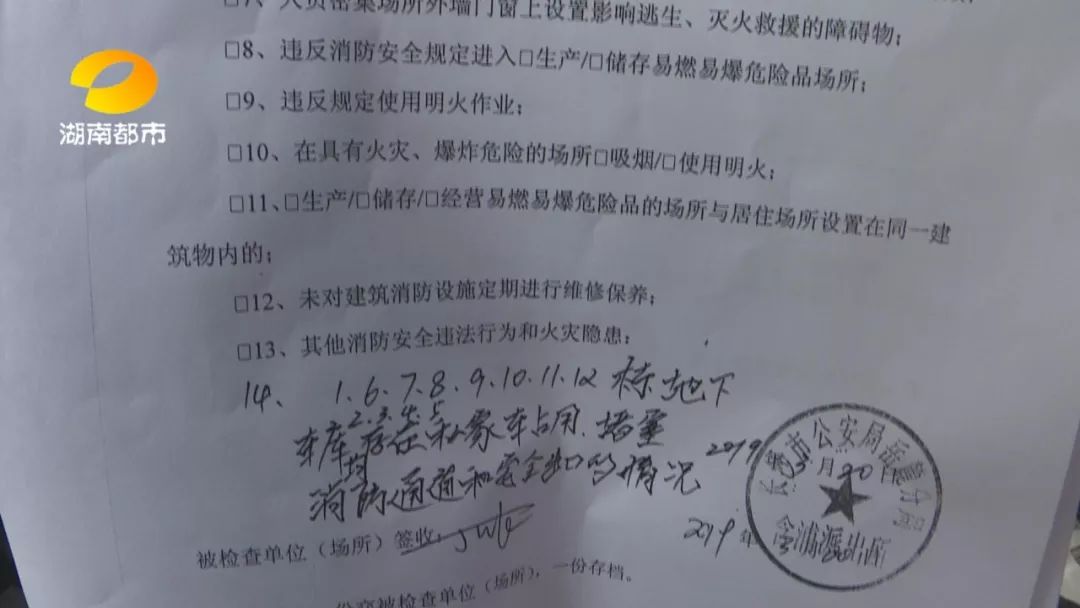 湖南都市
□7、人员密集场所外墙门窗上设置影响逃生、灭火救援的障碍物;
□8、违反消防安全规定进入□生产/□储存易燃易爆危险品场所;
□9、违反规定使用明火作业;
□10、在具有火灾、爆炸危险的场所□吸烟/□使用明火;
□11、□生产/□储存/□经营易燃易爆危险品的场所与居住场所设置在同一建
筑物内的;
□12、未对建筑消防设施定期进行维修保养;
□13、其他消防安全违法行为和火灾隐患:
14、 1.6.7.8.9.10.11.12栋地下
2.3.4.5
车库均存在私家车占用.堵塞
消防通道和安全出口的情况
2019年 月20
长沙市公安局岳麓分局
含浦派出所
被检查单位(场所)签收:
2019年
份交被检查单位(场所),一份存档。